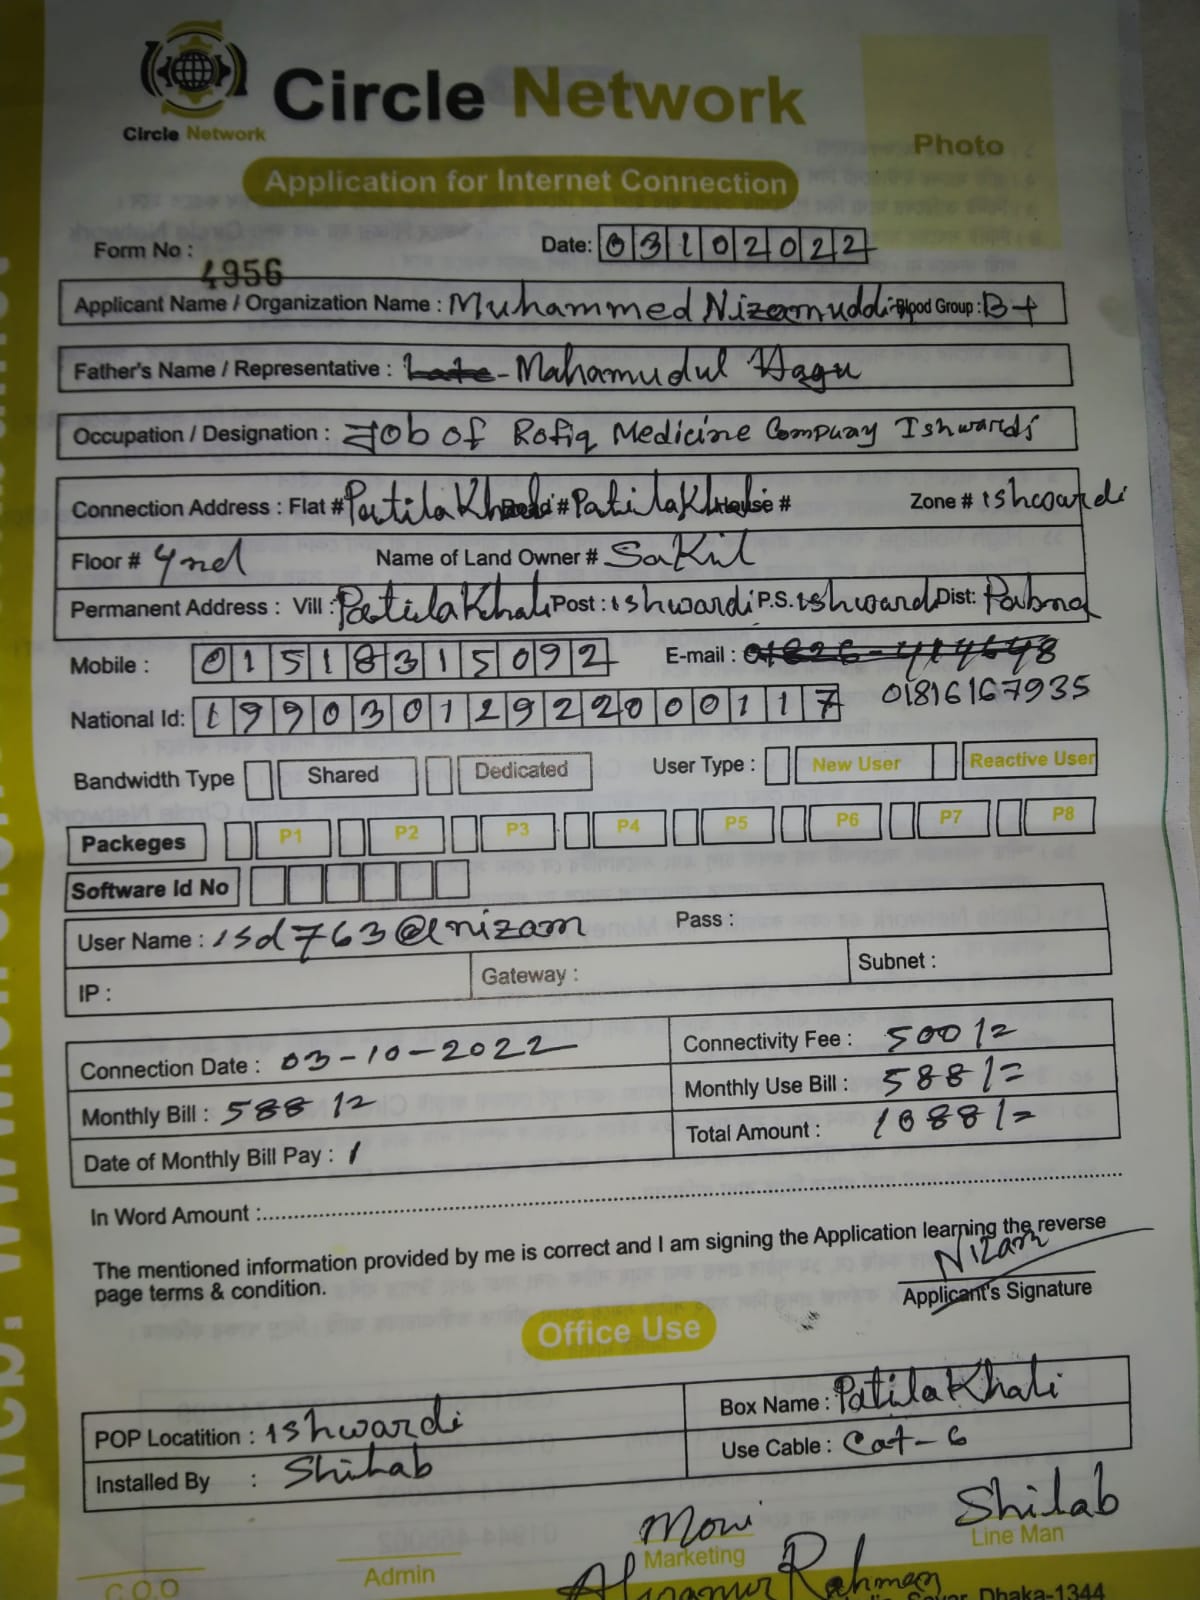 Circle Network
Circle Network
Photo
Application for Internet Connection
Form No : 4956
Date: 03102022
Applicant Name / Organization Name : Muhammed Nizamuddin Blood Group : B+
Father's Name / Representative : Late - Mahamudul Haqu
Occupation / Designation : Job of Rofiq Medicine Company Ishwardi
Connection Address : Flat # Patila Khali Road # Patila Khali House # Zone # ishwardi
Floor # 4nd Name of Land Owner # Sakil
Permanent Address : Vill : Patila Khali Post : ishwardi P.S. ishwardi Dist: Pabna
Mobile : 01518315092 E-mail :
National Id: 19903012922000117 01816167935
Bandwidth Type Shared Dedicated User Type : New User Reactive User
Packeges P1 P2 P3 P4 P5 P6 P7 P8
Software Id No
User Name : isd763@nizam Pass :
IP : Gateway : Subnet :
Connection Date : 03-10-2022 Connectivity Fee : 500/=
Monthly Bill : 588/= Monthly Use Bill : 588/=
Date of Monthly Bill Pay : 1 Total Amount : 1088/=
In Word Amount :
The mentioned information provided by me is correct and I am signing the Application learning the reverse
page terms & condition.
Nizam
Applicant's Signature
Office Use
POP Locatition : Ishwardi Box Name : Patila Khali
Installed By : Shihab Use Cable : Cat-6
Moni Shihab
C.O.O Admin Marketing Line Man
Rahman
Dhaka-1344